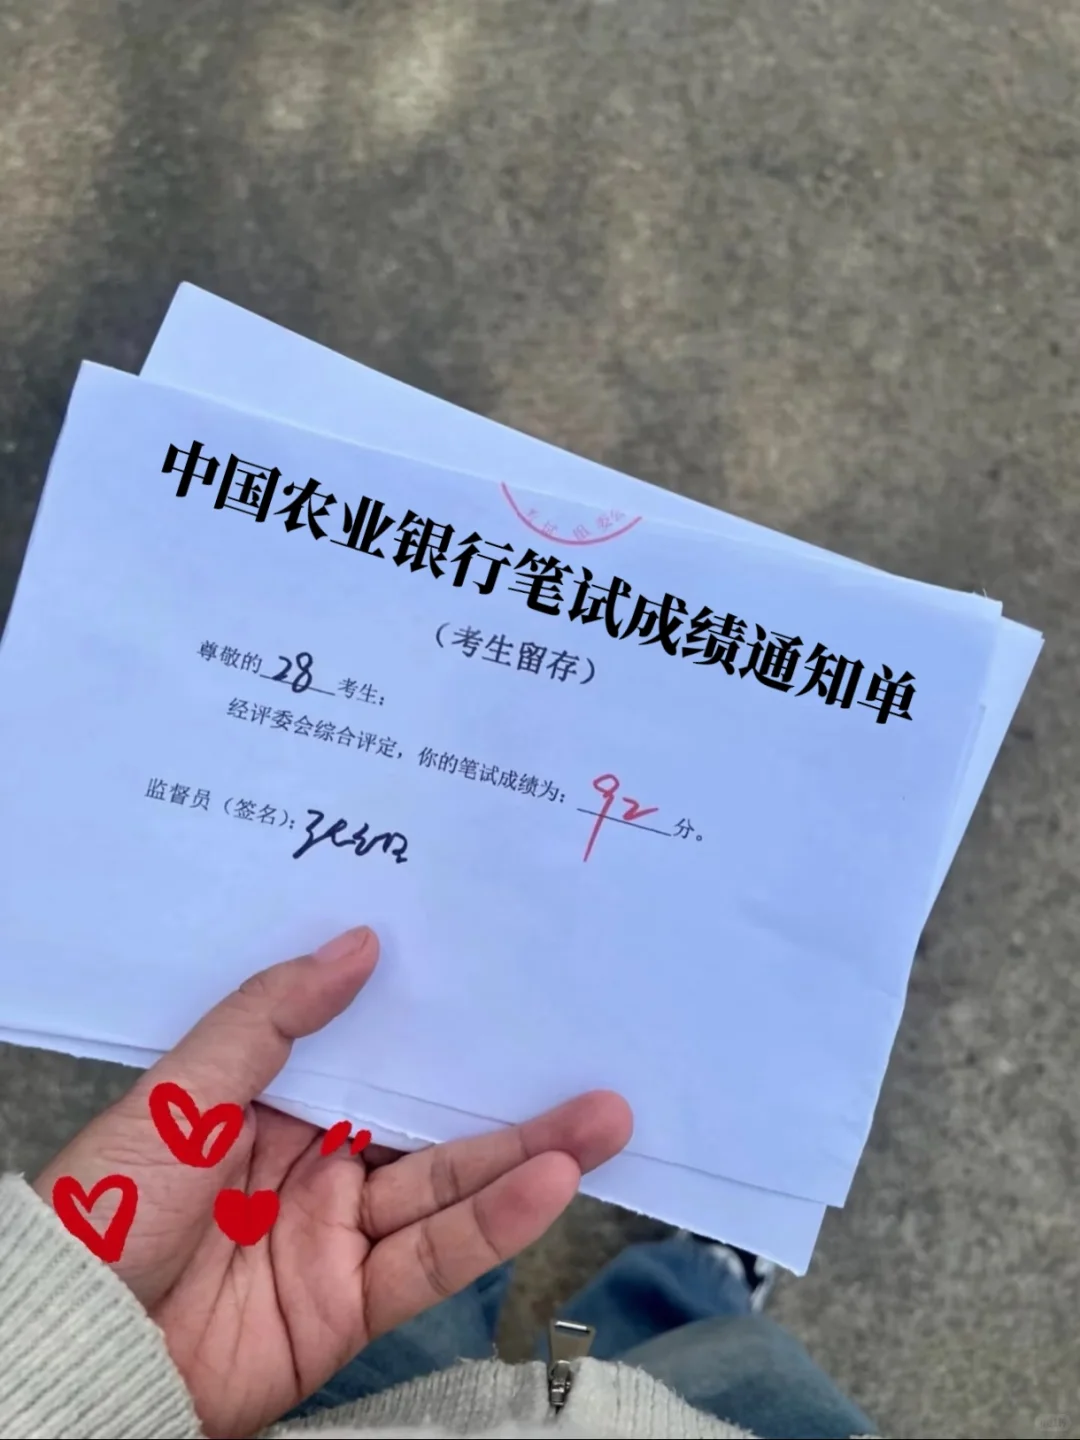 中国农业银行笔试成绩通知单
（考生留存）
尊敬的 28 考生：
经评委会综合评定，你的笔试成绩为： 92 分。
监督员（签名）：